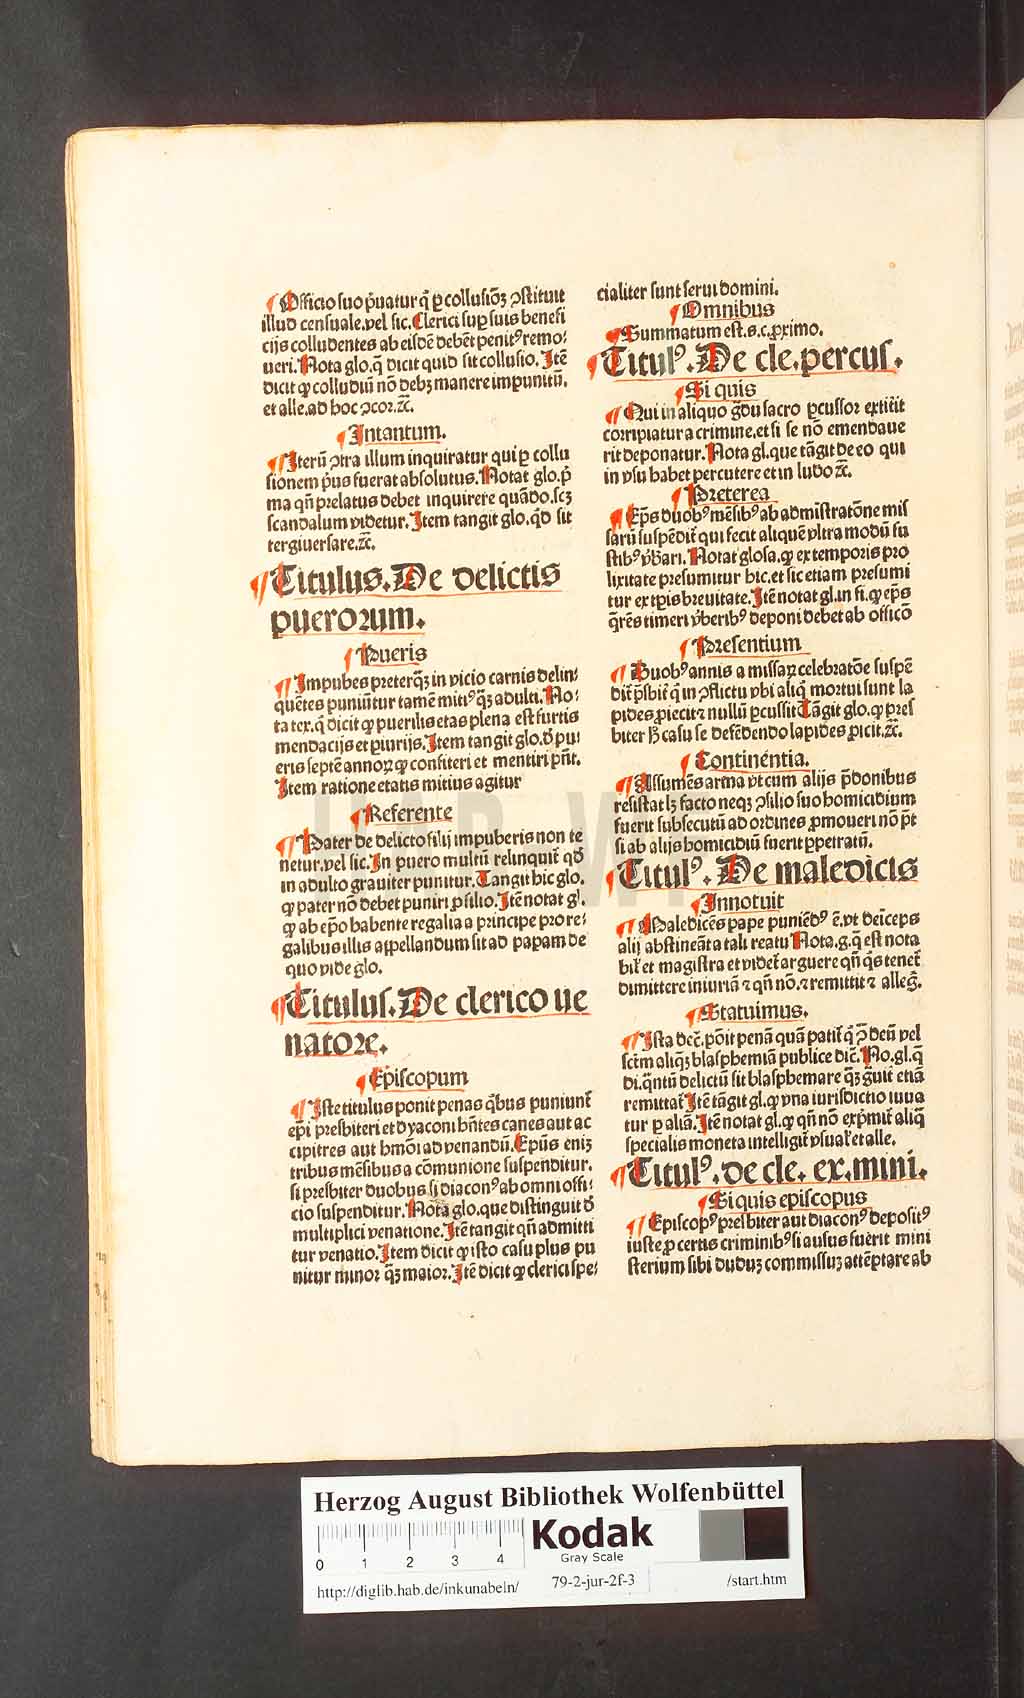 ¶ Officio suo p̄uatur q̄ ꝑ collusiōꝫ ꝯstituit
illud censuale.vel sic. Clerici suꝑ suis benefi
cijs colludentes ab eisdē debēt penit⁹ remo⸗
ueri. Nota glo.q̄ dicit quid sit collusio. Itē
dicit ꝙ colludiū nō debꝫ manere impunitū.
et alle.ad hoc ꝯcor.ꝛc̄.
¶ Intantum.
¶ Iterū ꝯtra illum inquiratur qui ꝑ collu
sionem p̄us fuerat absolutus. Notat glo.p̄
ma qn̄ prelatus debet inquirere quādo.scꝫ
scandalum videtur. Item tangit glo.qd̄ sit
tergiuersare.ꝛc̄.
¶ Titulus. De delictis
puerorum.
¶ Pueris
¶ Impubes preterqꝫ in vicio carnis delin⸗
quētes puniūtur tamē miti⁹ qꝫ adulti. No⸗
ta tex.q̄ dicit ꝙ puerilis etas plena est furtis
mendacijs et ꝑiurijs. Item tangit glo.d̄ pu⸗
eris septē annoꝝ ꝙ confiteri et mentiri pn̄t.
Item ratione etatis mitius agitur
¶ Referente
¶ Pater de delicto filij impuberis non te
netur.vel sic. In puero multū relinquit̄ qd̄
in adulto grauiter punitur. Tangit hic glo.
ꝙ pater nō debet puniri ꝓ filio. Itē notat gl.
ꝙ ab ep̄o habente regalia a principe pro re⸗
galibus illis appellandum sit ad papam de
quo vide glo.
¶ Titulus. De clerico ue
natore.
¶ Episcopum
¶ Iste titulus ponit penas q̄bus puniunt̄
ep̄i presbiteri et dyaconi hn̄tes canes aut ac
cipitres aut hmōi ad venandū. Ep̄us eniꝫ
tribus mēsibus a cōmunione suspenditur.
si presbiter duobus si diacon⁹ ab omni offi⸗
cio suspenditur. Nota glo.que distinguit d̄
multiplici venatione. Itē tangit qn̄ admitti
tur venatio. Item dicit ꝙ isto casu plus pu
nitur minor qꝫ maior. Itē dicit ꝙ clerici spe⸗
cialiter sunt serui domini.
¶ Omnibus
¶ Summatum est.s.c.ꝓximo.
¶ Titul⁹. De cle.percus.
¶ Si quis
¶ Qui in aliquo gd̄u sacro ꝑcussor extiterit
corripiatur a crimine.et si se nō emendaue
rit deponatur. Nota gl.que tāgit de eo qui
in vsu habet percutere et in ludo ꝛc̄.
¶ Preterea
¶ Ep̄s duob⁹ mēsib⁹ ab admīstratōne mis
sarū suspēdit̄ qui fecit aliquē vltra modū su
stib⁹ v̄bari. Notat glosa.ꝙ ex temporis pro
lixitate presumitur hic.et sic etiam presumi
tur ex tꝑis breuitate. Itē notat gl.in fi.ꝙ ep̄s
q̄rēs timeri v̄berib⁹ deponi debet ab officō
¶ Presentium
¶ Duob⁹ annis a missaꝝ celebratōe suspē
dit̄ p̄sbit̄ q̄ in ꝯflictu vbi aliq̄ mortui sunt la
pides ꝓiecit ⁊ nullū ꝑcussit Tāgit glo.ꝙ pres
biter hꝫ casu se defēdendo lapides ꝓicit.ꝛc̄.
¶ Continentia.
¶ Assumēs arma vt cum alijs p̄donibus
resistat lꝫ facto neqꝫ ꝯsilio suo homicidium
fuerit subsecutū ad ordines ꝓmoueri nō p̄t
si ab alijs homicidiū fuerit ꝑpetratū.
¶ Titul⁹. De maledicis
¶ Innotuit
¶ Maledicēs pape puniēd⁹ ē.vt deīceps
alij abstineāt a tali reatu Nota.g.q̄ est nota
bil̄ et magistra et videt̄ arguere qn̄ q̄s tenet̄
dimittere iniuriā ⁊ qn̄ nō.⁊ remittit ⁊ alleḡ.
¶ Statuimus.
¶ Ista dec̄. pōit penā quā patit̄ q̄ ꝯ̄ deū vel
sctm̄ aliqꝫ blasphemiā publice dic̄. No.gl.q̄
di.q̄ntū delictū sit blasphemare qꝫ guīt etiā
remittat̄ Itē tāgit gl.ꝙ vna iurisdictio iuua
tur ꝑ aliā. Itē notat gl.ꝙ qn̄ nō exp̄mit̄ aliq̄
specialis moneta intelligit̄ vsual̄ et alle.
¶ Titul⁹. de cle. ex.mini.
¶ Si quis episcopus
¶ Episcop⁹ presbiter aut diacon⁹ deposit⁹
iuste ꝓ certis criminib⁹ si ausus fuerit mini
sterium sibi duduꝫ commissuꝫ attēptare ab
Herzog August Bibliothek Wolfenbüttel
0 1 2 3 4
Kodak
Gray Scale
http://diglib.hab.de/inkunabeln/ 79-2-jur-2f-3 /start.htm
HAB-WF